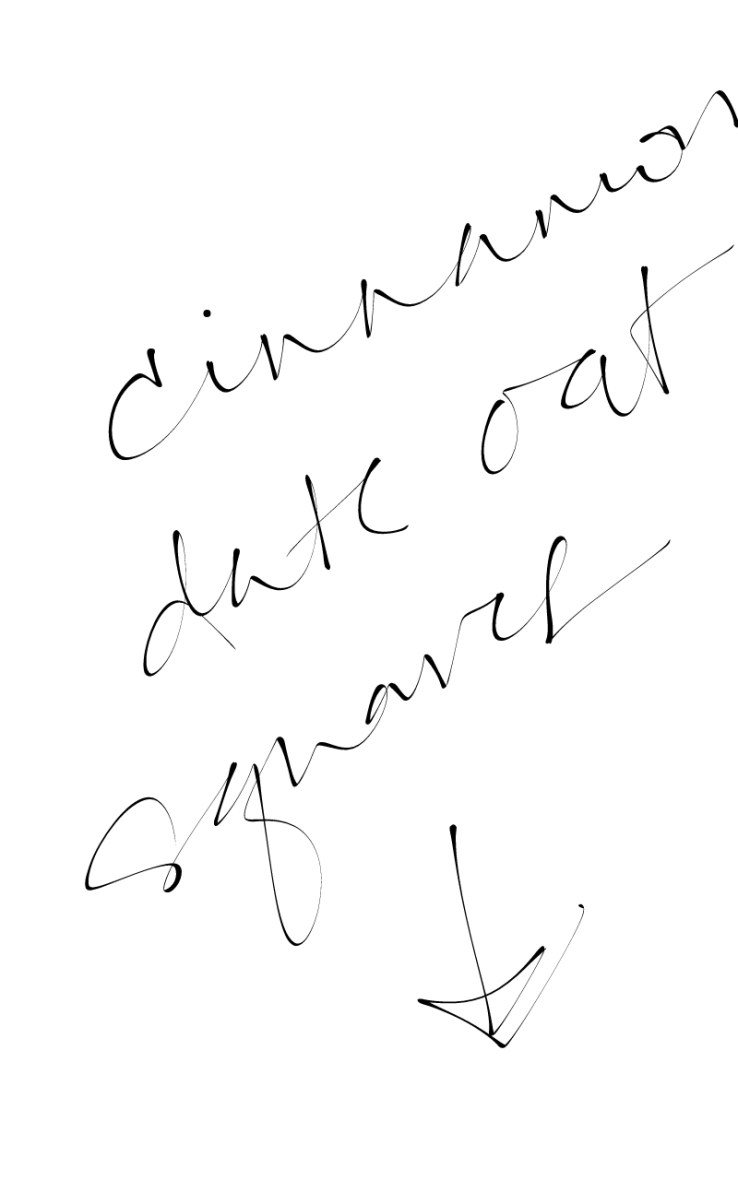 cinnamon
date oat
squares